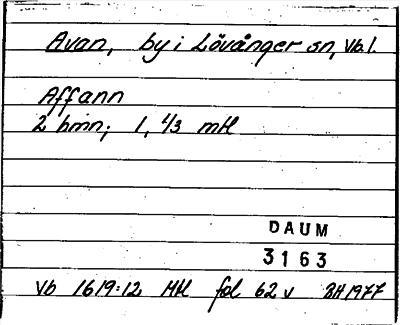 Avan, by i Lövånger sn, Vb l.
Affann
2 hmn; 1, 1/3 mtl
DAUM
3163
Vb 1619:12 Mtl fol 62 v BH 1977